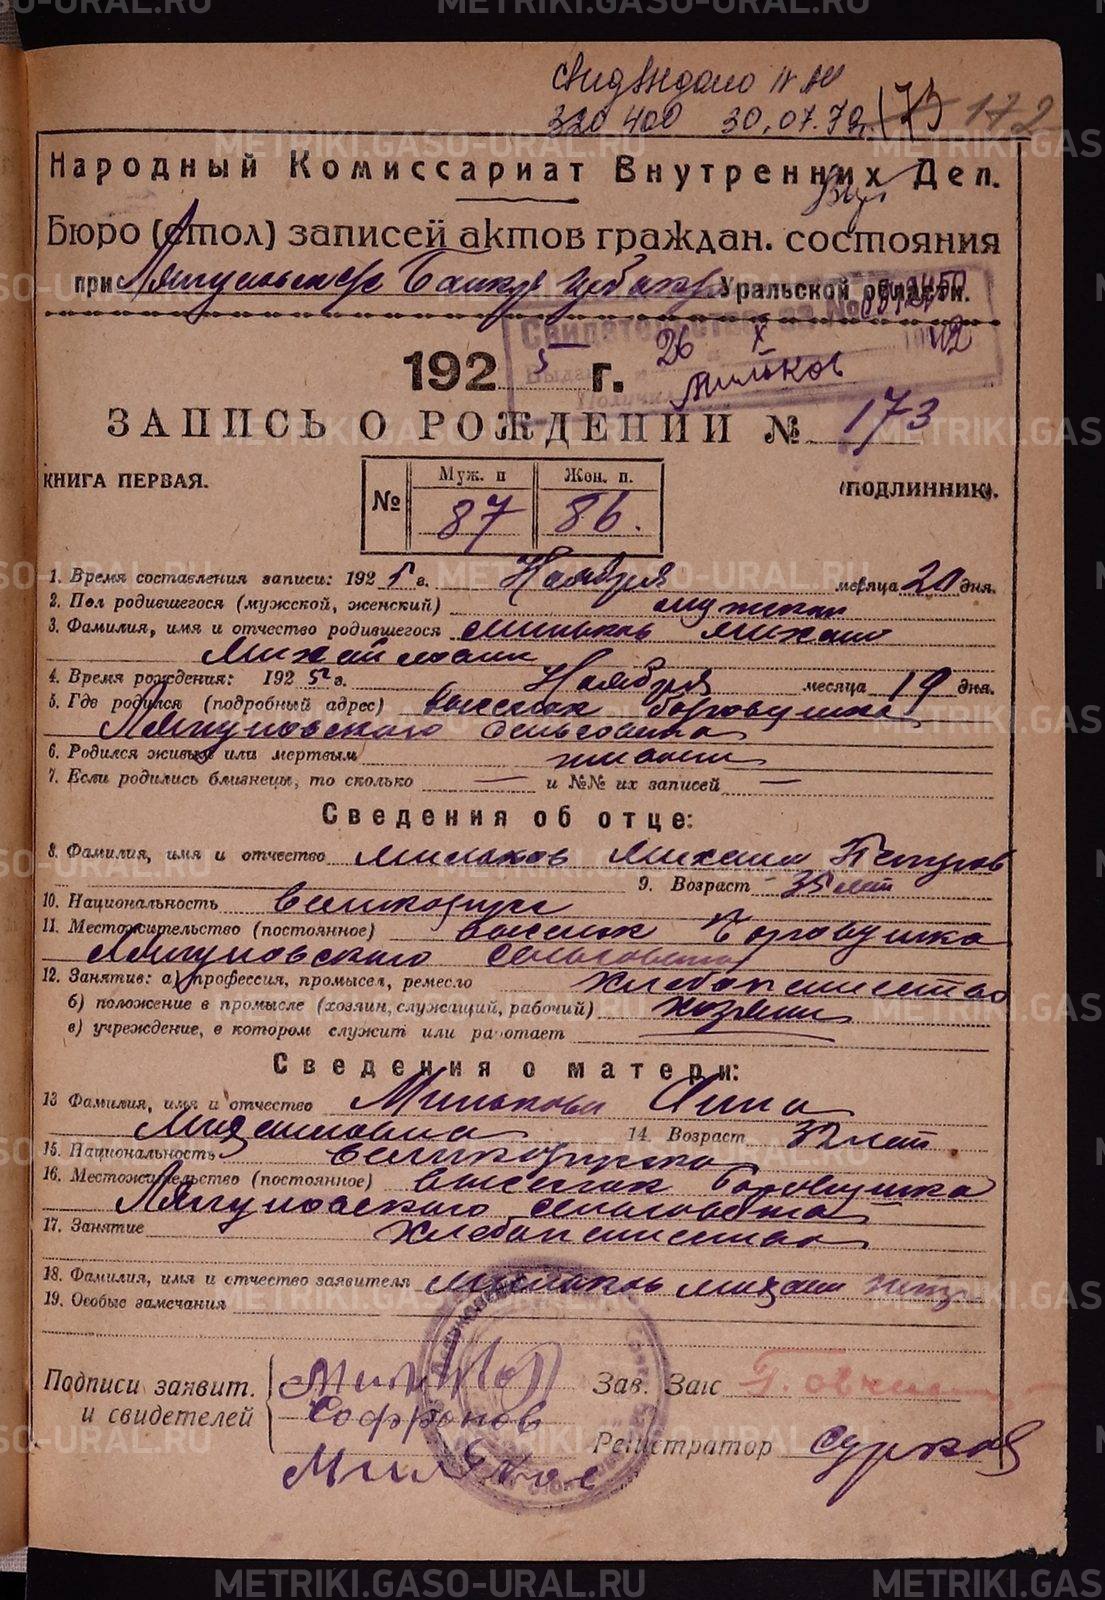 Свид выдано
320400 30.07.79г. 173 172
Народный Комиссариат Внутренних Дел.
Бюро (стол) записей актов граждан. состояния
при Ляпуновском Уральской области.
Свидетельство за №
26 X
1925 г. Мильков
ЗАПИСЬ О РОЖДЕНИИ № 173
КНИГА ПЕРВАЯ. (ПОДЛИННИК).
№ Муж. п Жен. п.
87 86.
1. Время составления записи: 1925 г. Ноября месяца 20 дня.
2. Пол родившегося (мужской, женский) мужской
3. Фамилия, имя и отчество родившегося Мильков Михаил
Михайлович
4. Время рождения: 1925 г. Ноября месяца 19 дня.
5. Где родился (подробный адрес) выселок Боровушка
Ляпуновского сельсовета
6. Родился живым или мертвым живым
7. Если родились близнецы, то сколько — и №№ их записей —
Сведения об отце:
8. Фамилия, имя и отчество Мильков Михаил Петров
9. Возраст 35 лет
10. Национальность великорус
11. Местожительство (постоянное) выселок Боровушка
Ляпуновского сельсовета
12. Занятие: а) профессия, промысел, ремесло хлебопашество
б) положение в промысле (хозяин, служащий, рабочий) хозяин
в) учреждение, в котором служит или работает
Сведения о матери:
13 Фамилия, имя и отчество Милькова Анна
14. Возраст 32 лет
15. Национальность великоруска
16. Местожительство (постоянное) выселок Боровушка
Ляпуновского сельсовета
17. Занятие хлебопашество
18. Фамилия, имя и отчество заявителя Мильков Михаил Петр
19. Особые замечания
Подписи заявит.
и свидетелей
Мильков
Софронов
Мильков
Зав. Загс
Регистратор Сурков
METRIKI.GASO-URAL.RU